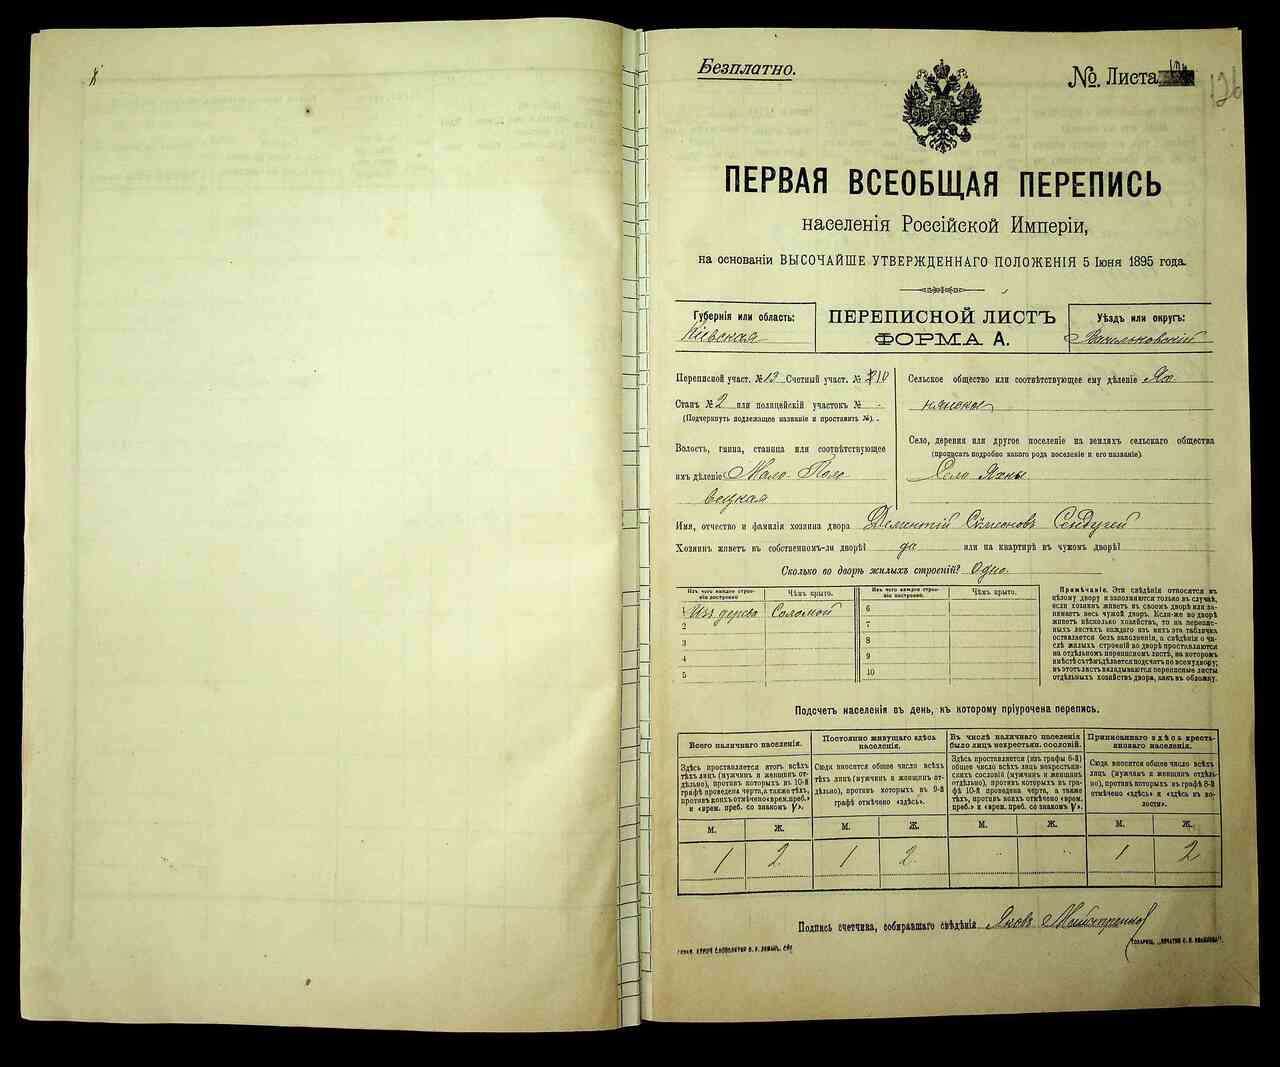 Безплатно.
№. Листа
126
ПЕРВАЯ ВСЕОБЩАЯ ПЕРЕПИСЬ
населенія Россійской Имперіи,
на основаніи ВЫСОЧАЙШЕ УТВЕРЖДЕННАГО ПОЛОЖЕНІЯ 5 Іюня 1895 года.
Губернія или область:
Кіевская
ПЕРЕПИСНОЙ ЛИСТЪ
ФОРМА А.
Уѣздъ или округъ:
Васильковскій
Переписной участ. №13 Счетный участ. № 10
Станъ № 2 или полицейскій участокъ № -
(Подчеркнуть подлежащее названіе и проставить №).
Волость, гмина, станица или соотвѣтствующее
имъ дѣленіе Мало-Поло
вецкая
Сельское общество или соотвѣтствующее ему дѣленіе
Село, деревня или другое поселеніе на земляхъ сельскаго общества
(прописать подробно какого рода поселеніе и его названіе)
Село Яхны
Имя, отчество и фамилія хозяина двора Дементій Сѣменовъ
Хозяинъ живетъ въ собственномъ-ли дворѣ? да или на квартирѣ въ чужомъ дворѣ?
Сколько во дворѣ жилыхъ строеній? Одно.
Изъ чего каждое строеніе построено.
Чѣмъ крыто.
Изъ чего каждое строеніе построено.
Чѣмъ крыто.
1 Изъ дерева Соломой
6
2
7
3
8
4
9
5
10
Примѣчаніе. Эти свѣдѣнія относятся къ
цѣлому двору и заполняются только въ случаѣ,
если хозяинъ живетъ въ своемъ дворѣ или занимаетъ
весь чужой дворъ. Если-же во дворѣ
живетъ нѣсколько хозяйствъ, то на переписныхъ
листахъ каждаго изъ нихъ эта табличка
оставляется безъ заполненія, а свѣдѣнія о числѣ
жилыхъ строеній во дворѣ проставляются
на отдѣльномъ переписномъ листѣ, на которомъ
вмѣстѣ съ тѣмъ дѣлается подсчетъ по всему двору;
въ этотъ листъ вкладываются переписные листы
отдѣльныхъ хозяйствъ двора, какъ въ обложку.
Подсчетъ населенія въ день, къ которому пріурочена перепись.
Всего наличнаго населенія.
Здѣсь проставляется итогъ всѣхъ
тѣхъ лицъ (мужчинъ и женщинъ отдѣльно),
противъ которыхъ въ 10-й
графѣ проведена черта, а также тѣхъ,
противъ коихъ отмѣчено «врем. преб.»
и «врем. преб. со знакомъ V».
Постоянно живущаго здѣсь
населенія.
Сюда вносится общее число всѣхъ
тѣхъ лицъ (мужчинъ и женщинъ отдѣльно),
противъ которыхъ въ 9-й
графѣ отмѣчено «здѣсь».
Въ числѣ наличнаго населенія
было лицъ некрестьян. сословій.
Здѣсь проставляется (изъ графы 6-й)
общее число всѣхъ лицъ некрестьянскихъ
сословій (мужчинъ и женщинъ
отдѣльно), противъ которыхъ въ графѣ
10-й проведена черта, а также
тѣхъ, противъ коихъ отмѣчено «врем.
преб.» и «врем. преб. со знакомъ V».
Приписаннаго здѣсь крестьянскаго
населенія.
Сюда вносится общее число всѣхъ
лицъ (мужчинъ и женщинъ отдѣльно),
противъ которыхъ въ графѣ 8-й
отмѣчено «здѣсь» и «здѣсь въ волости».
М. Ж. М. Ж. М. Ж. М. Ж.
1 2 1 2 1 2
Подпись счетчика, собиравшаго свѣдѣнія Яковъ